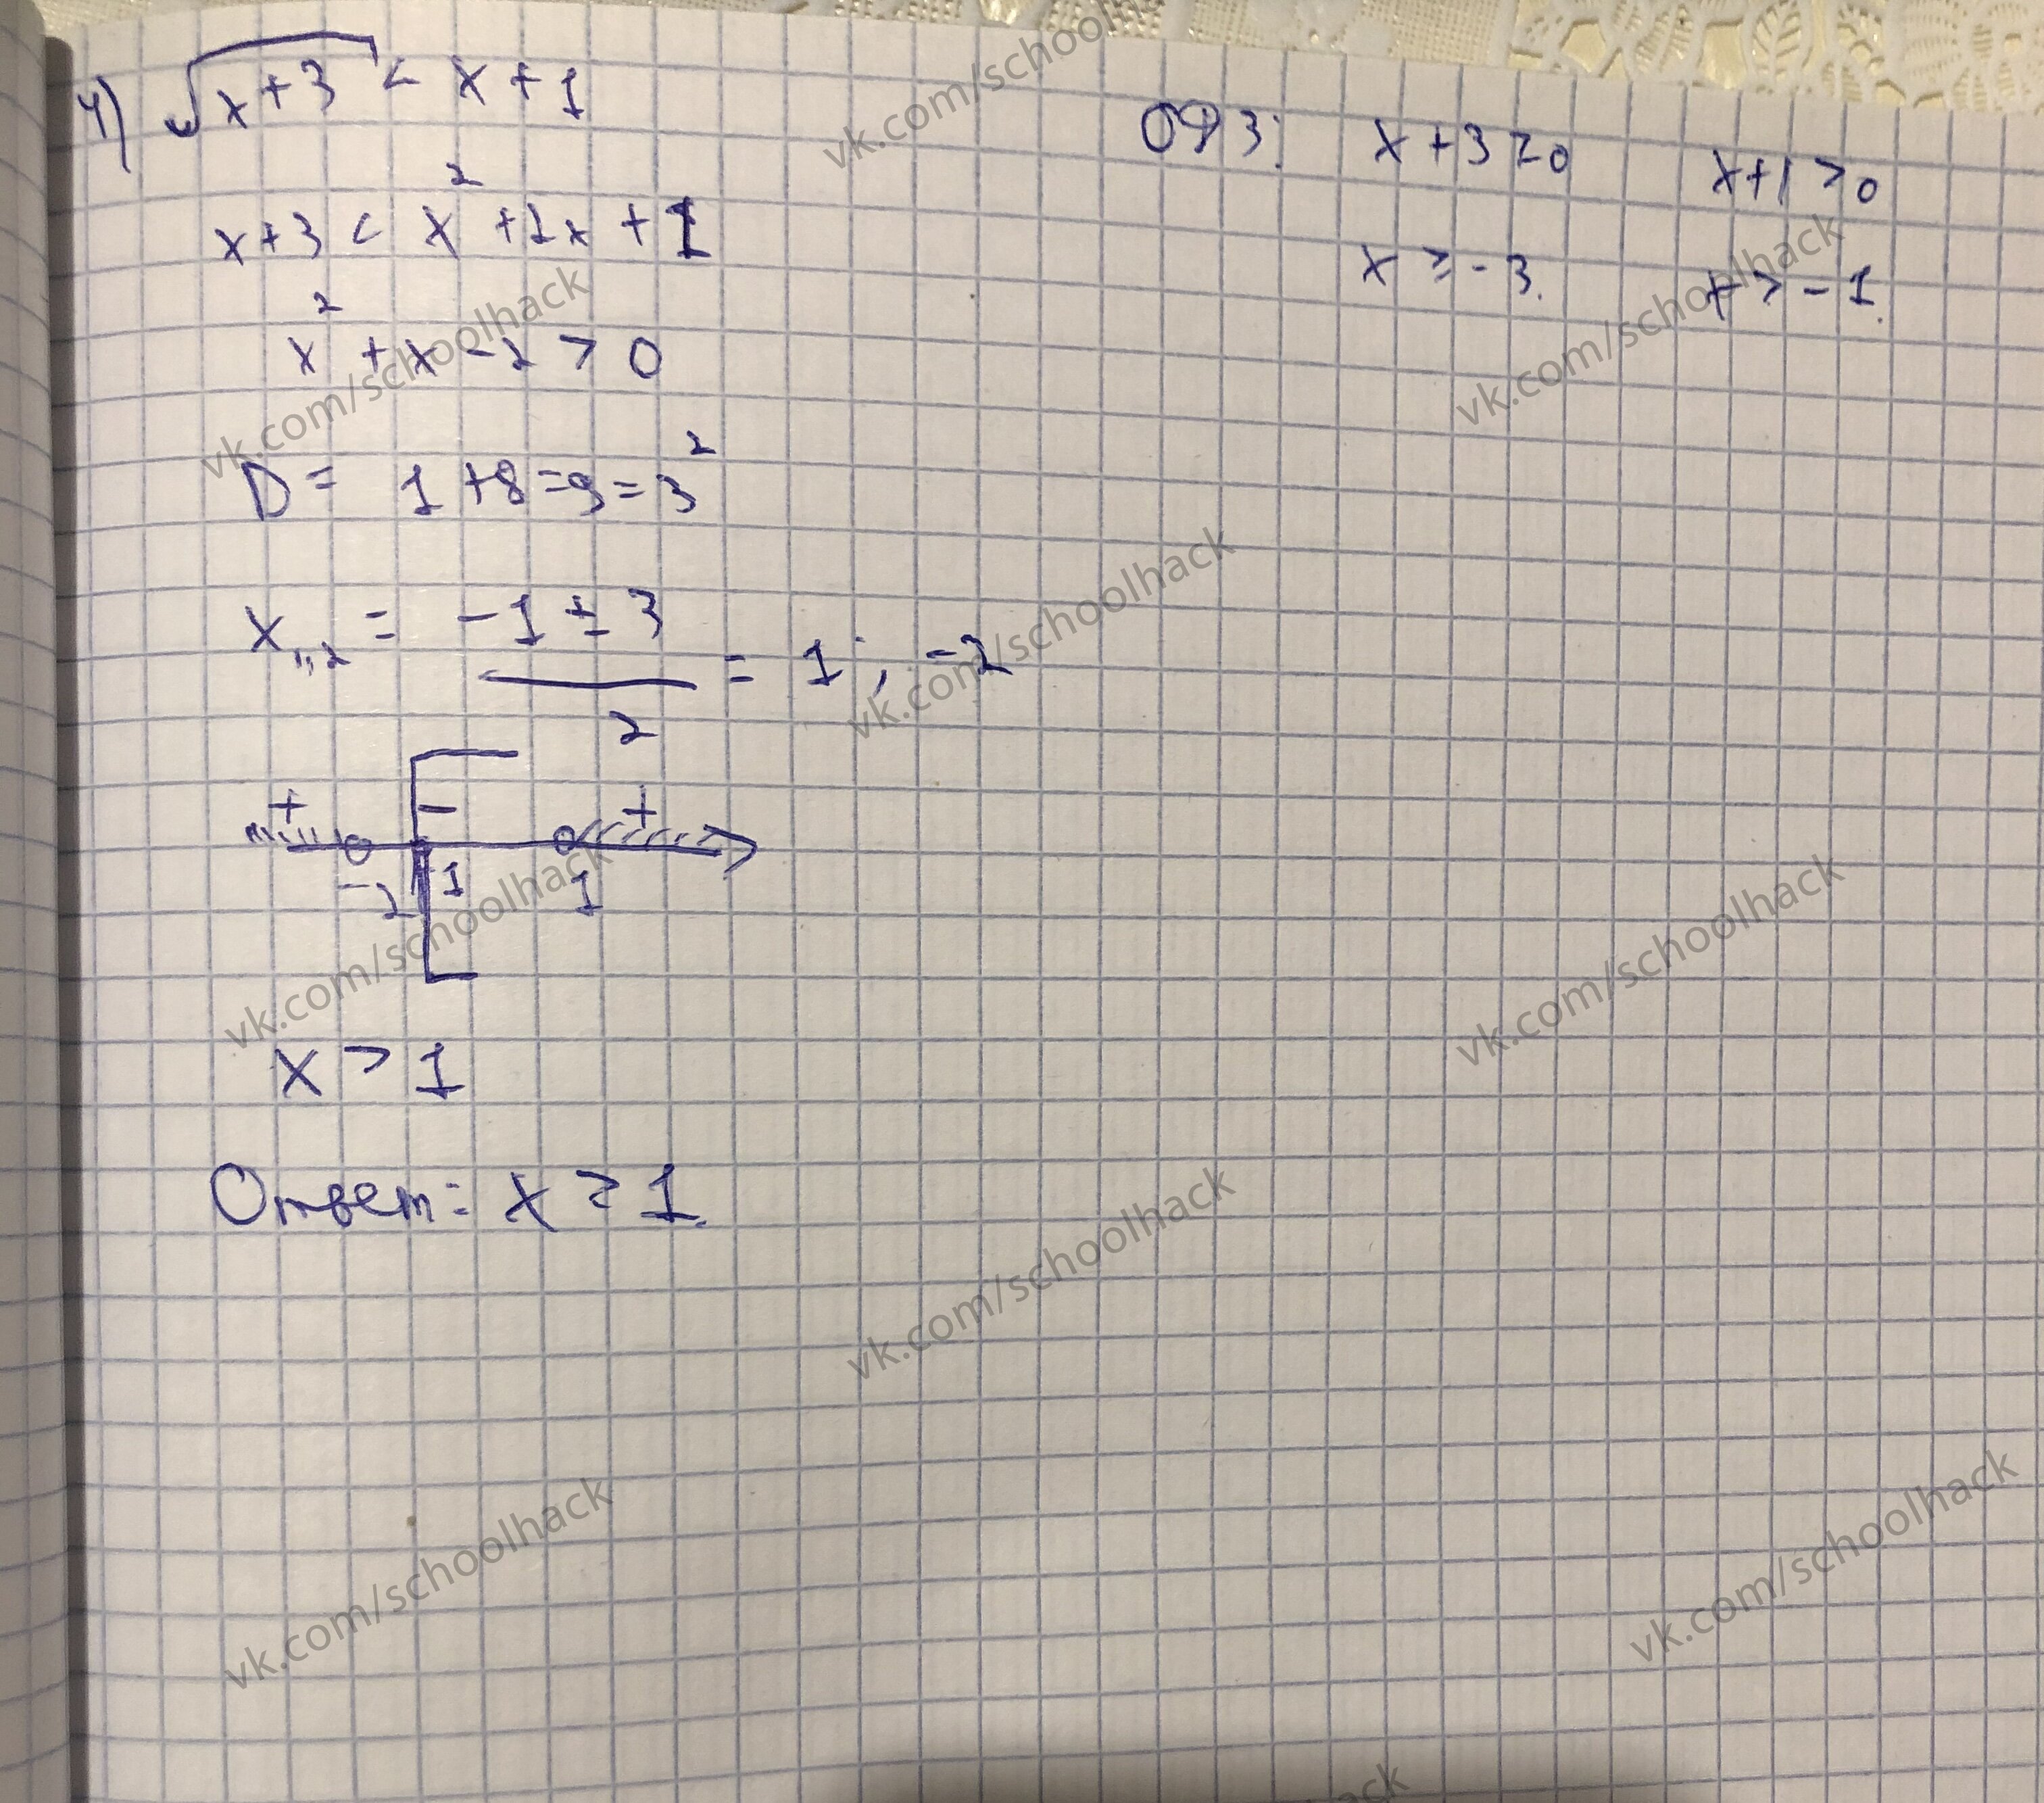 4) √x+3 < x+1
x+3 < x² +2x +1
x² + x - 2 > 0
D = 1 +8 =9 = 3²
x₁,₂ = -1 ± 3 / 2 = 1 ; -2
+ - +
-2 -1 1
x > 1
Ответ: x ≥ 1.
ОДЗ: x+3 ≥ 0 x+1 > 0
x ≥ -3. x > -1.
vk.com/schoolhack
vk.com/schoolhack
vk.com/schoolhack
vk.com/schoolhack
vk.com/schoolhack
vk.com/schoolhack
vk.com/schoolhack
vk.com/schoolhack
vk.com/schoolhack